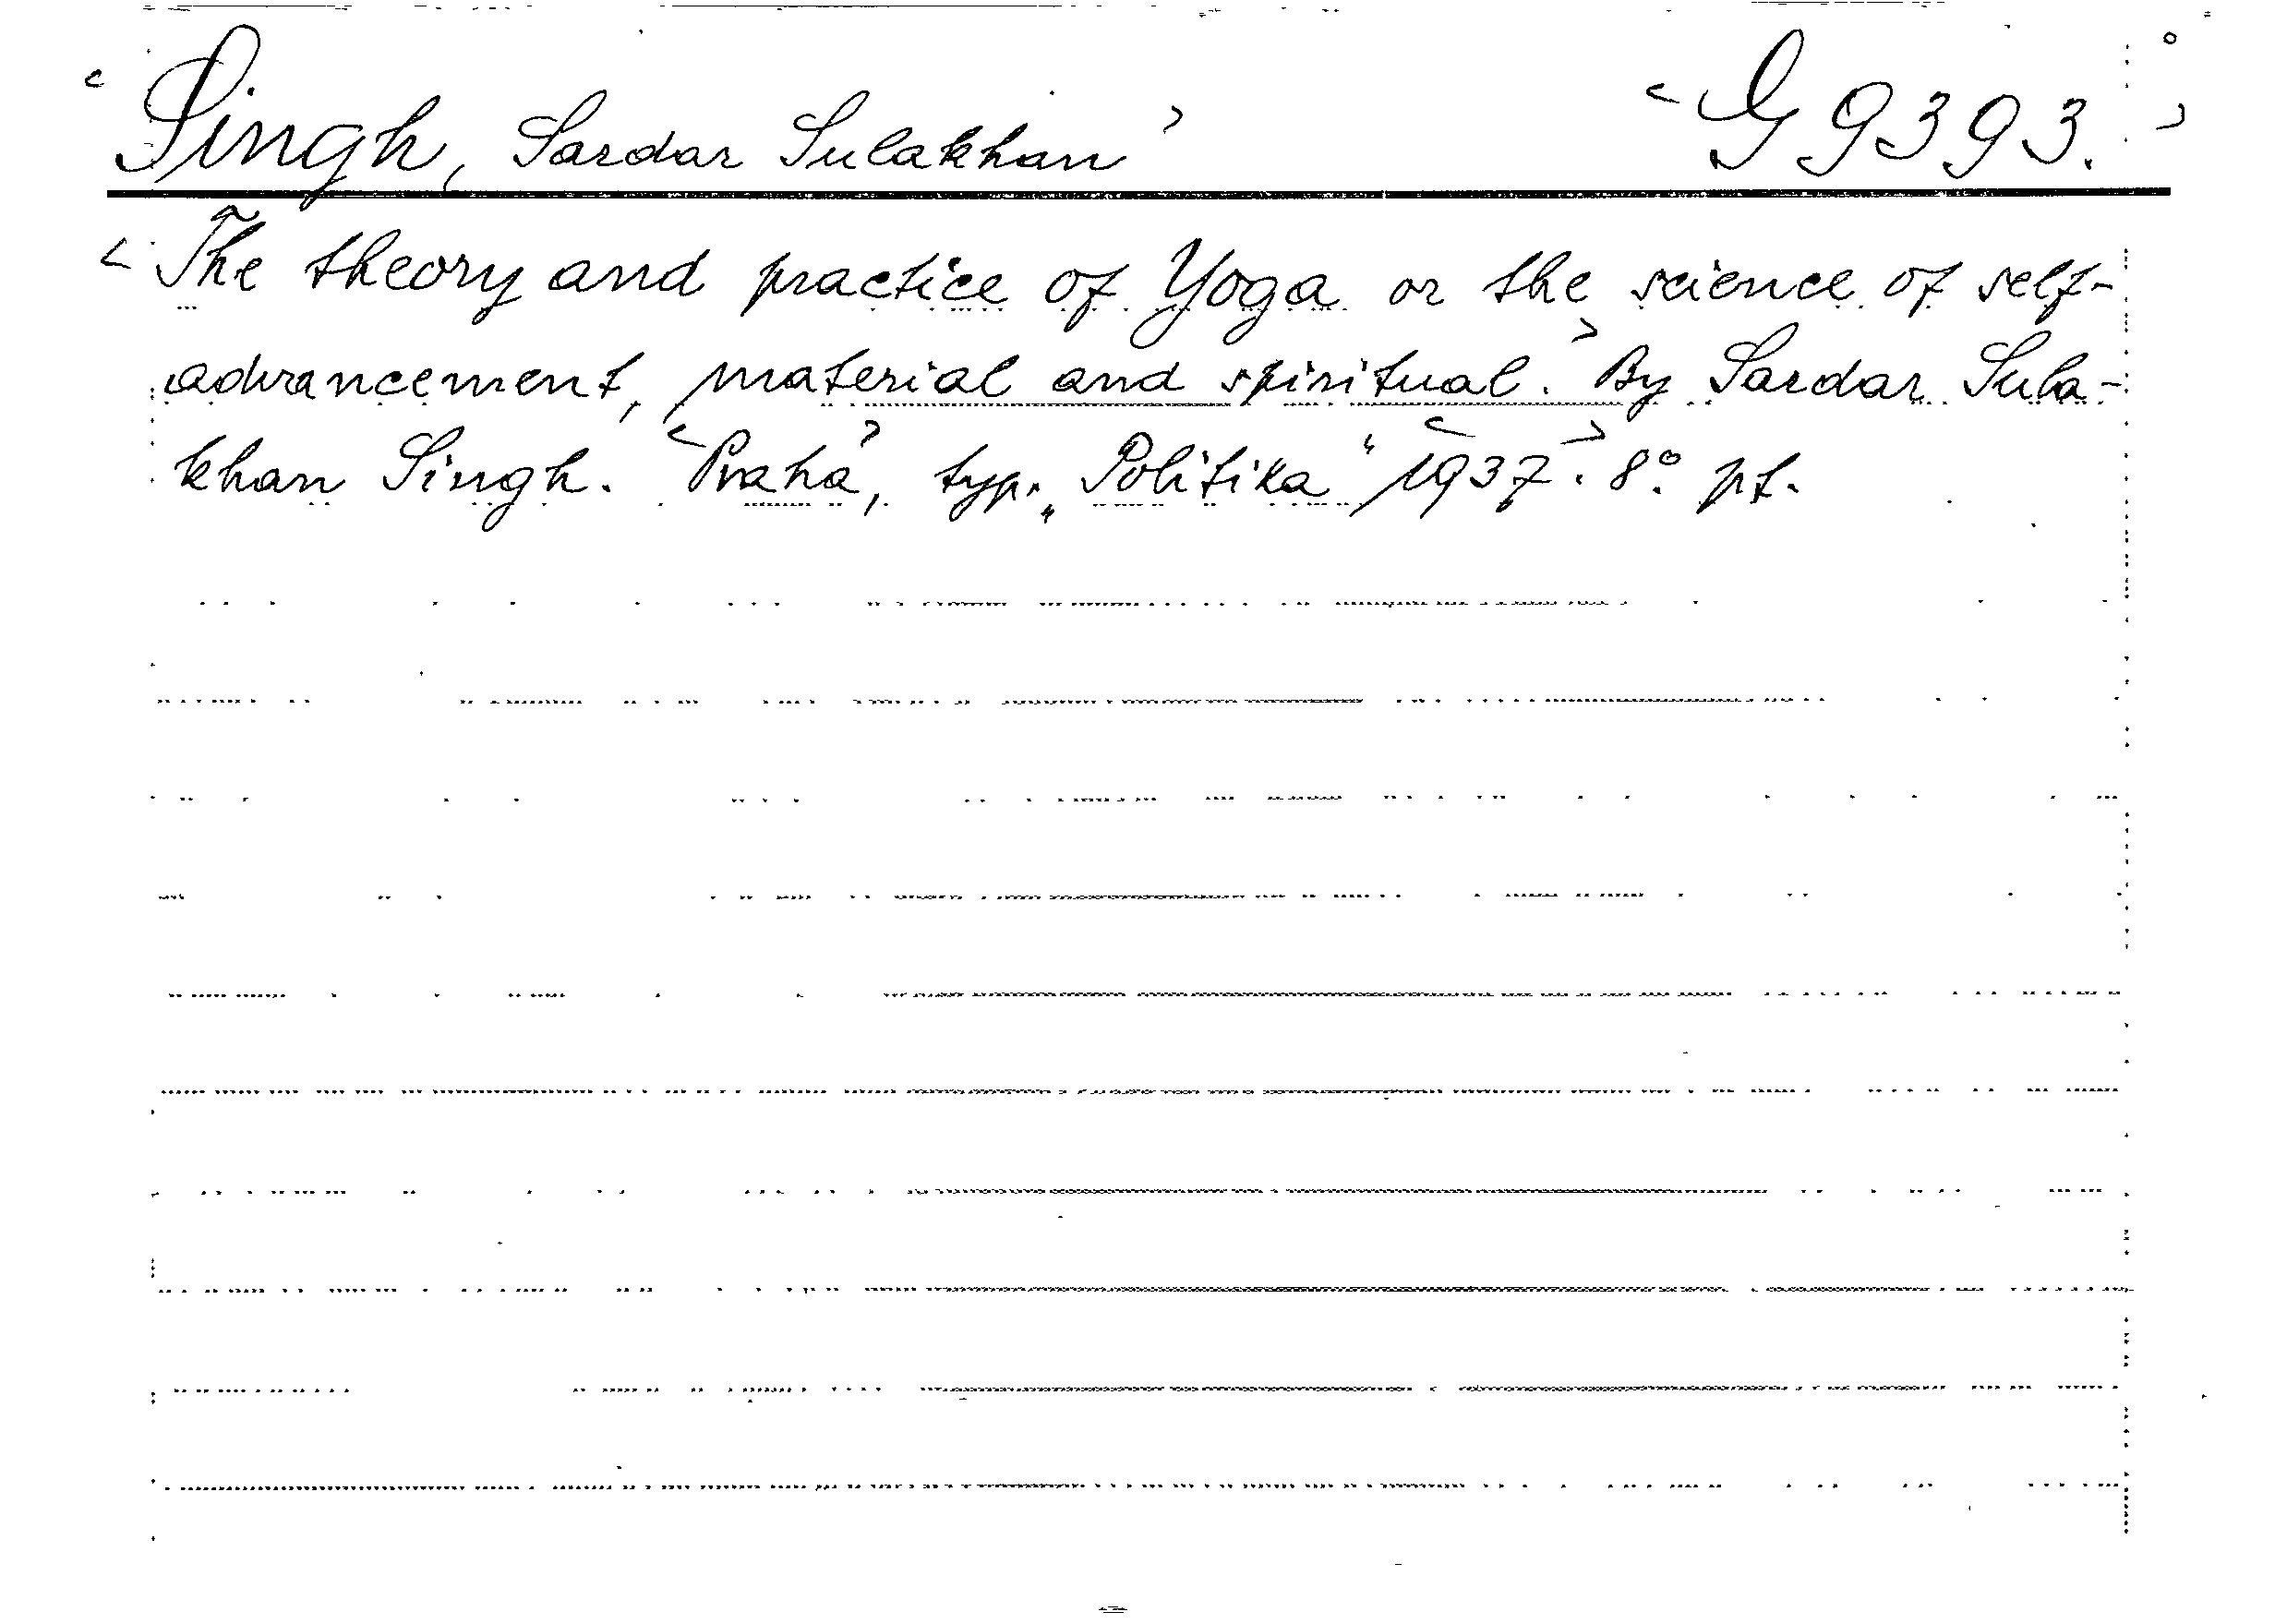 <Singh, Sardar Sulakhan> <G 9393.>
<The theory and practice of Yoga or the science of self-
advancement, material and spiritual.> By Sardar Sula-
khan Singh. <Praha>, typ. „Politika“ <1937>. 8° pf.